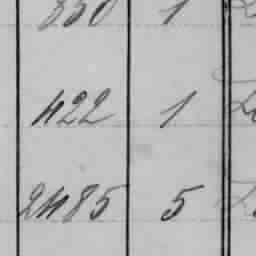 330 1
422 1
2485 5